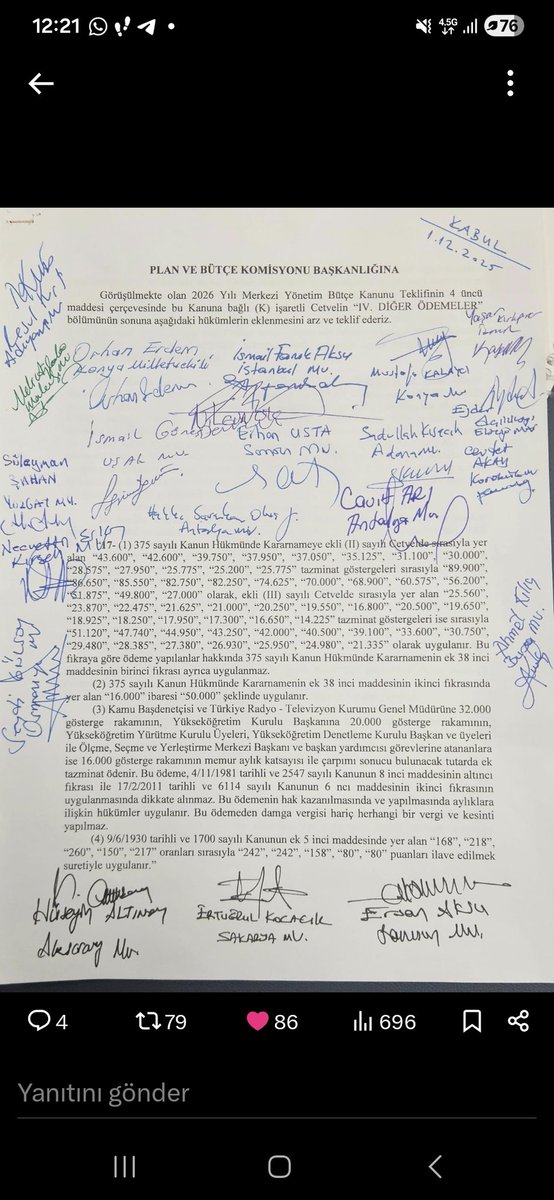 12:21
4,5G
76
KABUL
1.12.2025
PLAN VE BÜTÇE KOMİSYONU BAŞKANLIĞINA
Görüşülmekte olan 2026 Yılı Merkezi Yönetim Bütçe Kanunu Teklifinin 4 üncü
maddesi çerçevesinde bu Kanuna bağlı (K) işaretli Cetvelin “IV. DİĞER ÖDEMELER”
bölümünün sonuna aşağıdaki hükümlerin eklenmesini arz ve teklif ederiz.
Orhan Erdem
Konya Milletvekili
İsmail Faruk Aksu
İstanbul Mv.
Mustafa KALAYCI
Konya Mv
İsmail
UŞAK MV
Erhan USTA
Samsun Mv.
Sadullah Kısacık
Adana Mv.
Cevdet
AKAY
Süleyman
ŞAHAN
YOZGAT MV.
Cavit ARI
Antalya Mv.
Antalya Mv.
Ahmet Kılıç
Bursa Mv.
17- (1) 375 sayılı Kanun Hükmünde Kararnameye ekli (II) sayılı Cetvelde sırasıyla yer
alan “43.600”, “42.600”, “39.750”, “37.950”, “37.050”, “35.125”, “31.100”, “30.000”,
“28.575”, “27.950”, “25.775”, “25.200”, “25.775” tazminat göstergeleri sırasıyla “89.900”,
“86.650”, “85.550”, “82.750”, “82.250”, “74.625”, “70.000”, “68.900”, “60.575”, “56.200”,
“51.875”, “49.800”, “27.000” olarak, ekli (III) sayılı Cetvelde sırasıyla yer alan “25.560”,
“23.870”, “22.475”, “21.625”, “21.000”, “20.250”, “19.550”, “16.800”, “20.500”, “19.650”,
“18.925”, “18.250”, “17.950”, “17.300”, “16.650”, “14.225” tazminat göstergeleri ise sırasıyla
“51.120”, “47.740”, “44.950”, “43.250”, “42.000”, “40.500”, “39.100”, “33.600”, “30.750”,
“29.480”, “28.385”, “27.380”, “26.930”, “25.950”, “24.980”, “21.335” olarak uygulanır. Bu
fıkraya göre ödeme yapılanlar hakkında 375 sayılı Kanun Hükmünde Kararnamenin ek 38 inci
maddesinin birinci fıkrası ayrıca uygulanmaz.
(2) 375 sayılı Kanun Hükmünde Kararnamenin ek 38 inci maddesinin ikinci fıkrasında
yer alan “16.000” ibaresi “50.000” şeklinde uygulanır.
(3) Kamu Başdenetçisi ve Türkiye Radyo - Televizyon Kurumu Genel Müdürüne 32.000
gösterge rakamının, Yükseköğretim Kurulu Başkanına 20.000 gösterge rakamının,
Yükseköğretim Yürütme Kurulu Üyeleri, Yükseköğretim Denetleme Kurulu Başkan ve üyeleri
ile Ölçme, Seçme ve Yerleştirme Merkezi Başkanı ve başkan yardımcısı görevlerine atananlara
ise 16.000 gösterge rakamının memur aylık katsayısı ile çarpımı sonucu bulunacak tutarda ek
tazminat ödenir. Bu ödeme, 4/11/1981 tarihli ve 2547 sayılı Kanunun 8 inci maddesinin altıncı
fıkrası ile 17/2/2011 tarihli ve 6114 sayılı Kanunun 6 ncı maddesinin ikinci fıkrasının
uygulanmasında dikkate alınmaz. Bu ödemenin hak kazanılmasında ve yapılmasında aylıklara
ilişkin hükümler uygulanır. Bu ödemeden damga vergisi hariç herhangi bir vergi ve kesinti
yapılmaz.
(4) 9/6/1930 tarihli ve 1700 sayılı Kanunun ek 5 inci maddesinde yer alan “168”, “218”,
“260”, “150”, “217” oranları sırasıyla “242”, “242”, “158”, “80”, “80” puanları ilave edilmek
suretiyle uygulanır.”
Hüseyin ALTINSOY
Aksaray Mv.
ERTUĞRUL KOCACIK
SAKARYA MV.
Ersan AKSU
Samsun Mv.
4
79
86
696
Yanıtını gönder